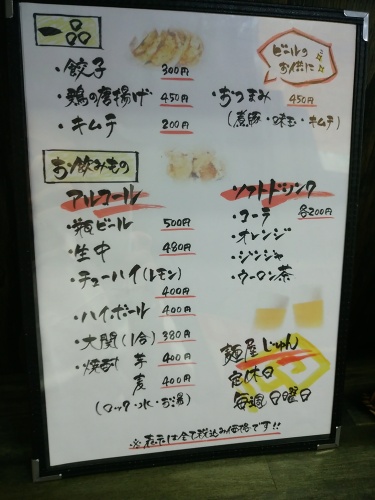 一品
・餃子 300円
・鶏の唐揚げ 450円
・キムチ 200円
ビールの
お供に
・おつまみ 450円
(煮豚・味玉・キムチ)
お飲みもの
アルコール
・瓶ビール 500円
・生中 480円
・チューハイ(レモン)
400円
・ハイボール 400円
・大関(1合) 380円
・焼酎 芋 400円
麦 400円
(ロック・水・お湯)
ソフトドリンク
・コーラ 各200円
・オレンジ
・ジンジャ
・ウーロン茶
麺屋じゅん
定休日
毎週日曜日
※表示は全て税込み価格です!!